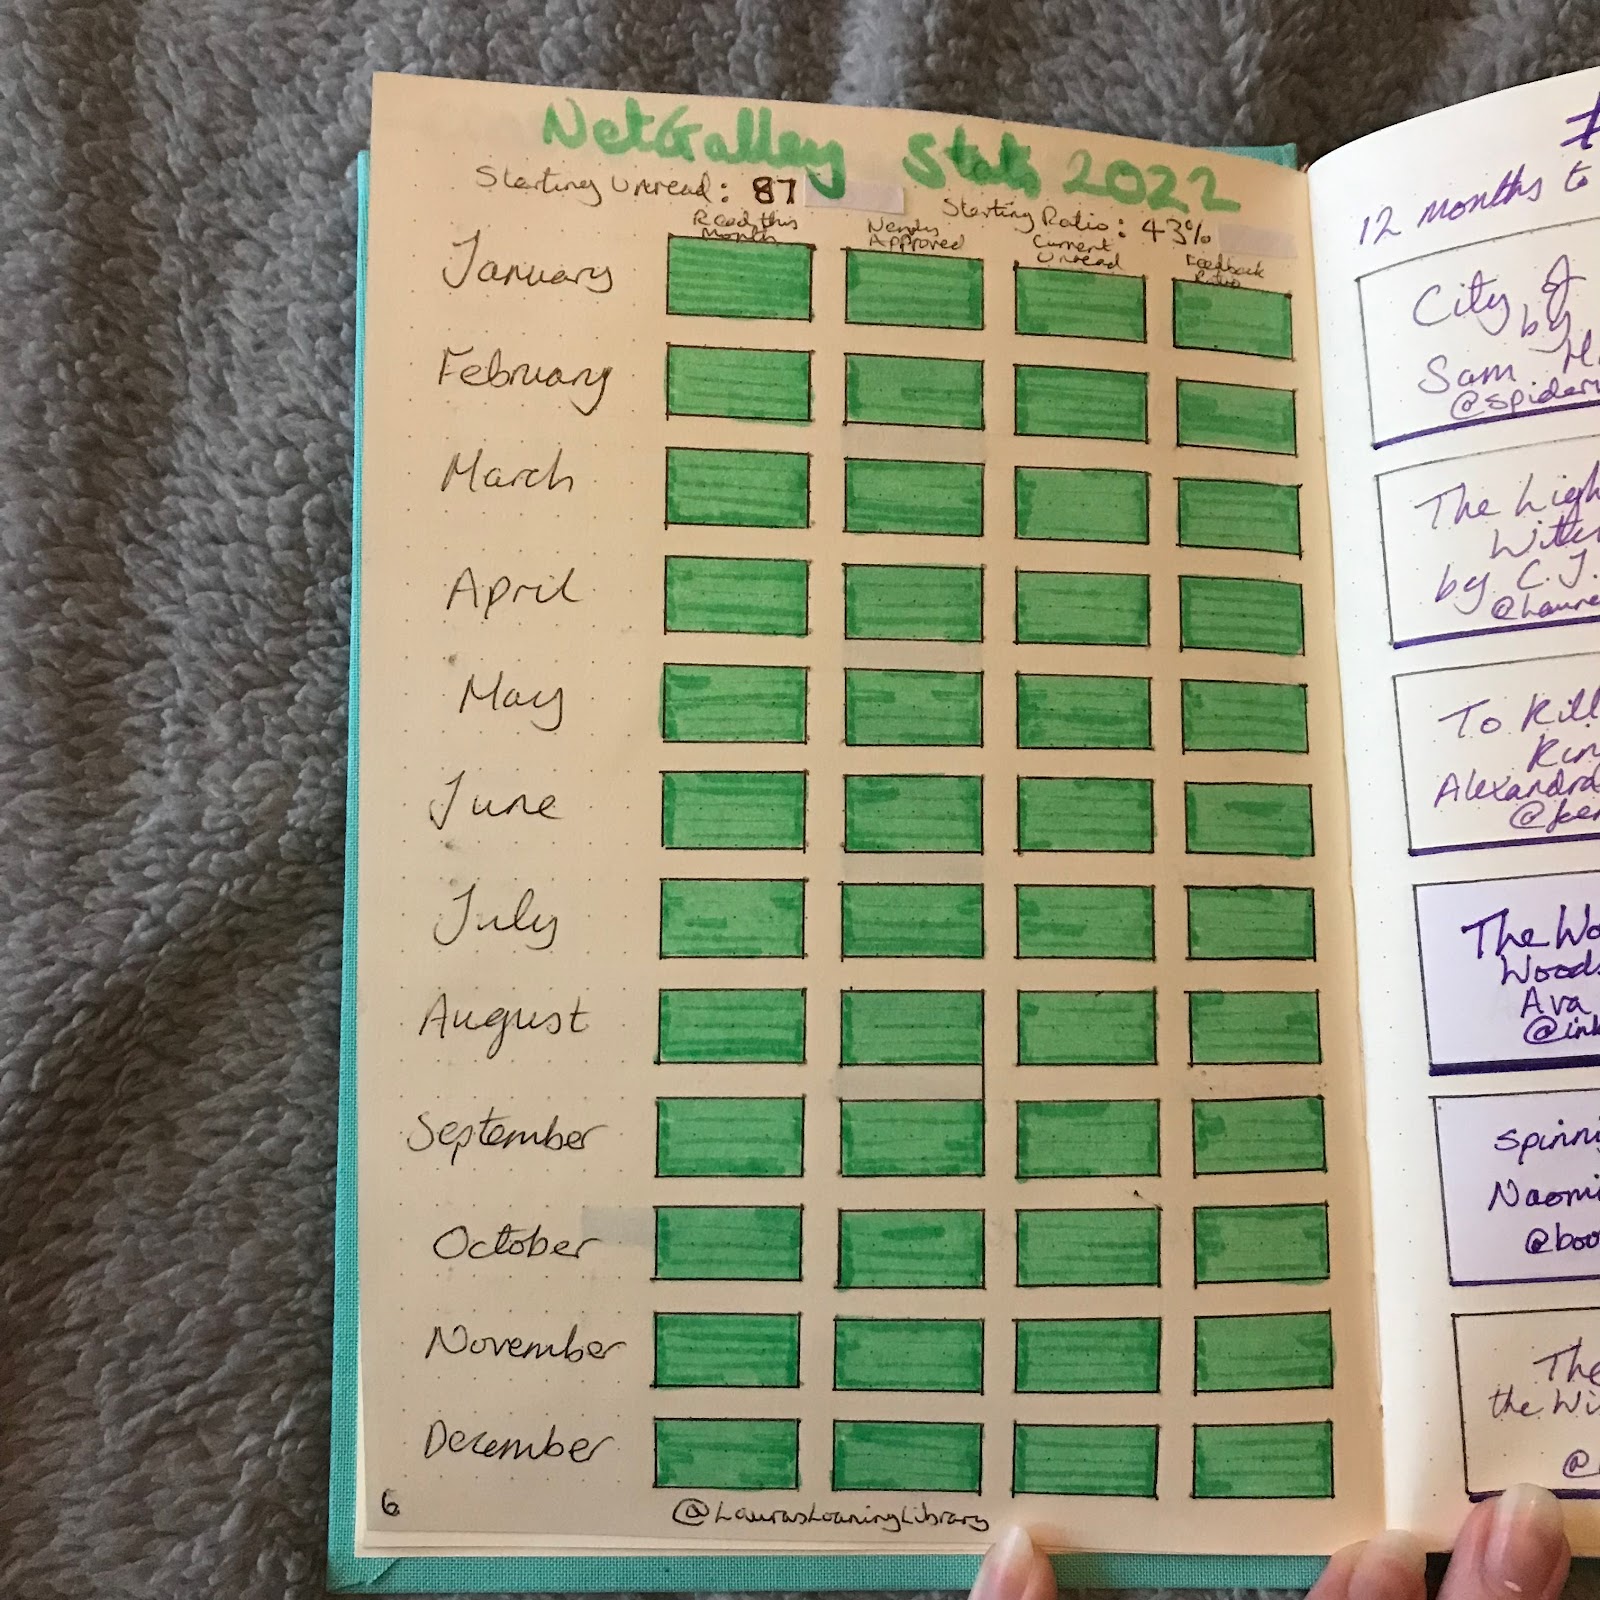 NetGalley Stats 2022
Starting Unread: 87
Starting Ratio: 43%
Read this Month
Newly Approved
Current Unread
Feedback Ratio
January
February
March
April
May
June
July
August
September
October
November
December
6
@LaurasLoaningLibrary
12 months to
City of
by
Sam
@spider
The Ligh
Witch
by C.J.
@Laura
To Kill
Kin
Alexandra
The Wo
Woods
Ava
@ink
Spinni
Naomi
@boo
The
the Wi
@